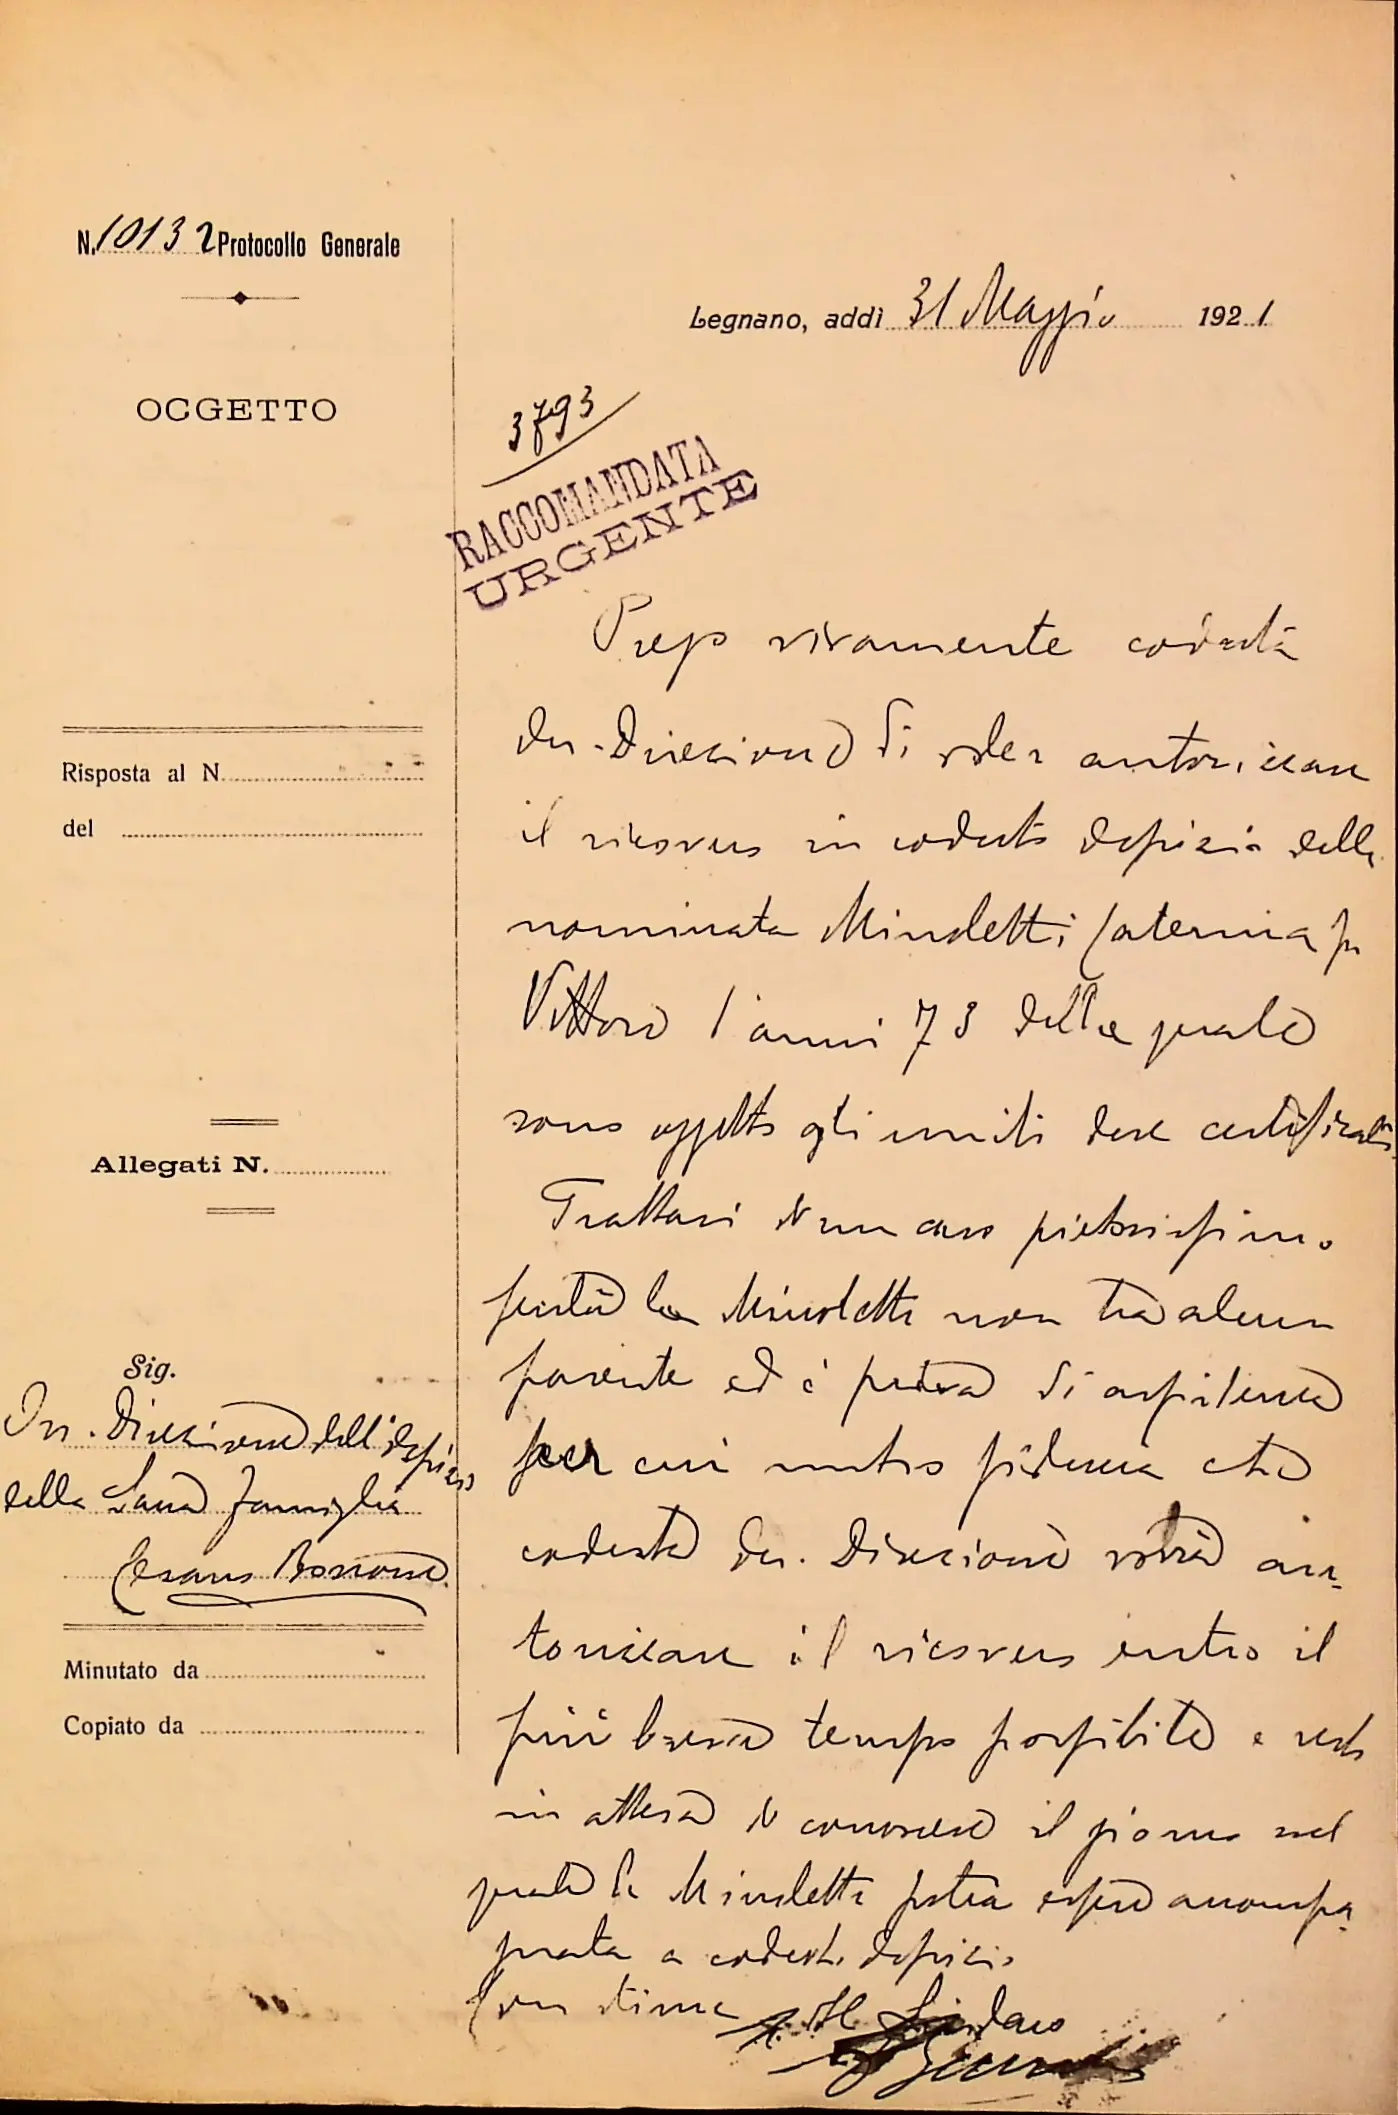 N. 10132 Protocollo Generale
OGGETTO
Legnano, addì 31 Maggio 1921
3793
RACCOMANDATA
URGENTE
Risposta al N.
del
Allegati N.
Sig.
On. Direzione dell'Ospizio
della Sacra Famiglia
Cesano Boscone
Minutato da
Copiato da
Prego vivamente codesta
On. Direzione di voler autorizzare
il ricovero in codesto Ospizio della
nominata Minoletti Caterina fu
Vittore d'anni 73 della quale
sono oggetto gli uniti due certificati.
Trattasi di un caso pietosissimo
perchè la Minoletti non ha alcun
parente ed è priva di assistenza
per cui nutro fiducia che
codesta On. Direzione vorrà au-
torizzare il ricovero entro il
più breve tempo possibile e resto
in attesa di conoscere il giorno nel
quale la Minoletti potrà essere accompa-
gnata a codesto Ospizio.
Con stima
Il Sindaco